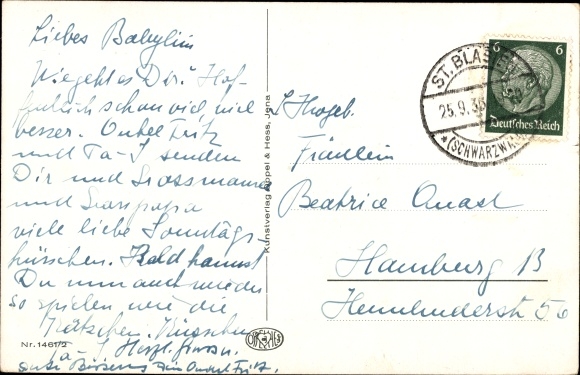 Liebes Babylein
Wie geht es Dir? Hof-
fentlich schon viel, viel
besser. Onkel Fritz
und Ta-I senden
Dir und Grossmama
und Grosspapa
viele liebe Sonntags-
küsschen. Bald kannst
Du nun auch wieder
so spielen wie die
Kätzchen.
Ta-I Herzl.
Gute Besserung Dein Onkel Fritz.
Nr. 1461/2
Kunstverlag Koppel & Hess, Jena
ST. BLASIEN
25.9.36
* (SCHWARZWALD)
6 6
Deutsches Reich
Fräulein
Beatrice Quast
Hamburg 13
56